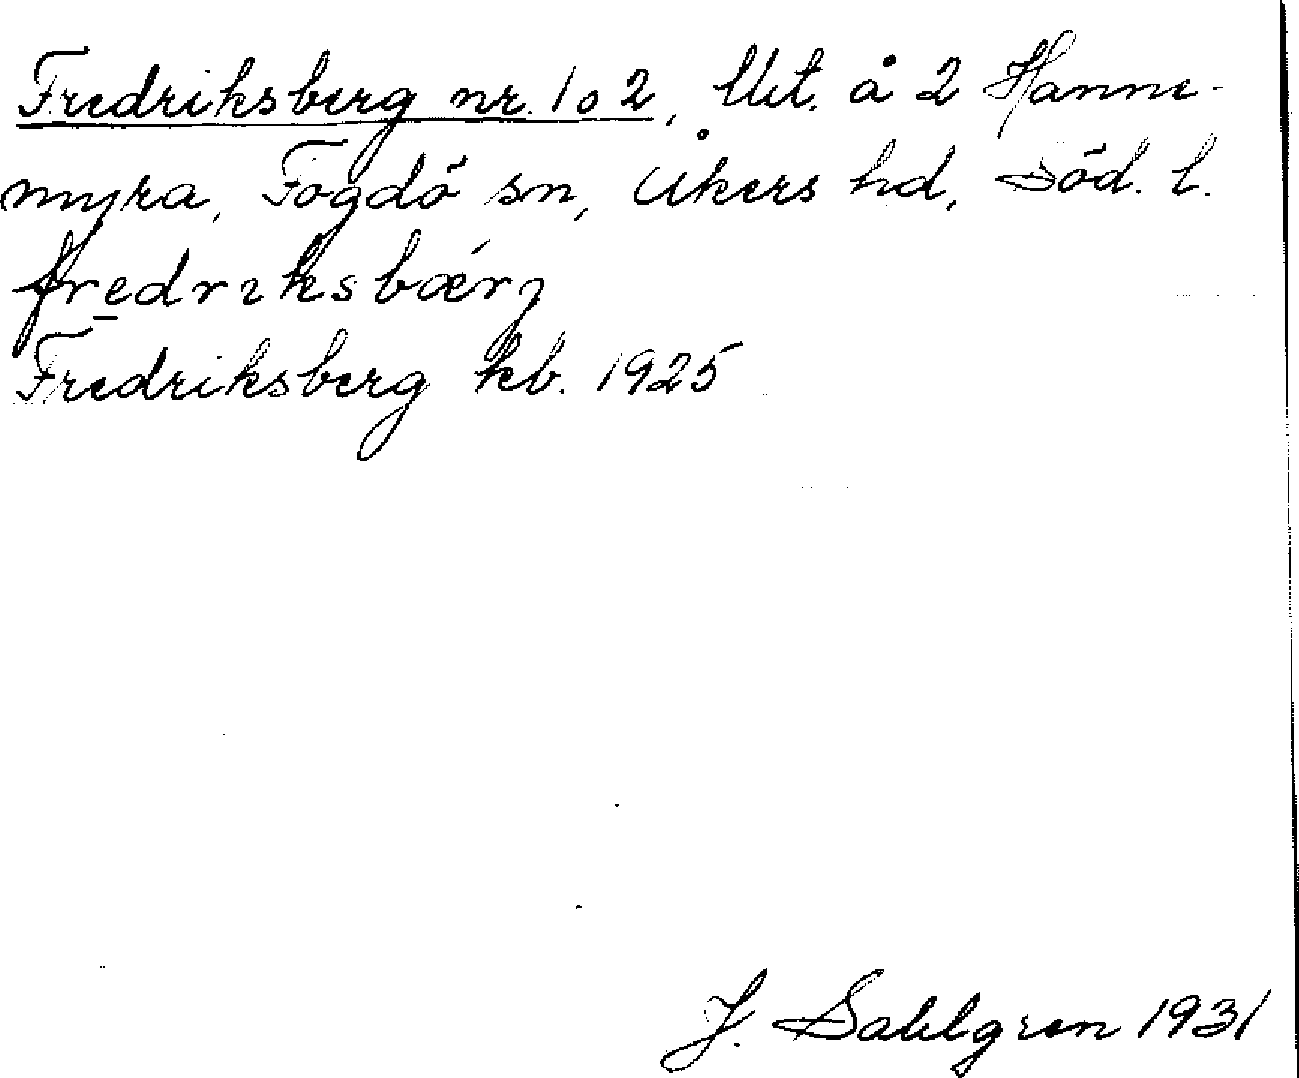 Fredriksberg nr. 1 o 2, Utt. å 2 Hanne-
myra, Fogdö sn, Åkers hd, Söd. l.
fredrıksbærj
Fredriksberg kb. 1925
J. Sahlgren 1931